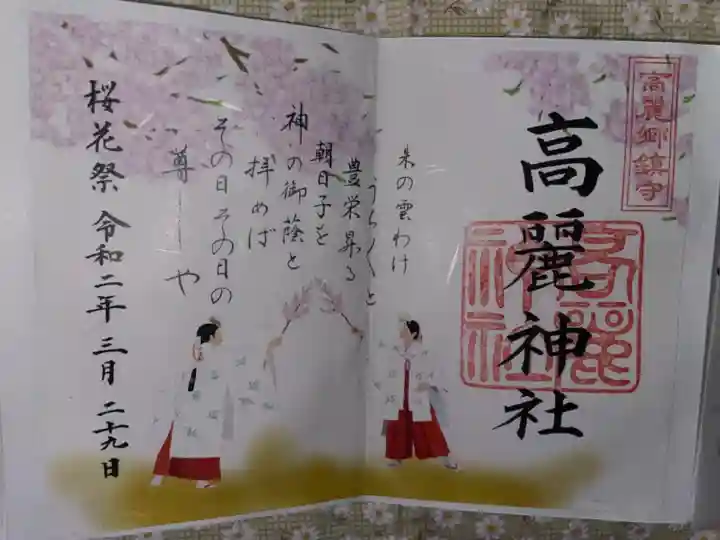 高麗郷鎮守
高麗神社
高麗神社
朱の雲わけ
うら〳〵と
豊栄昇る
朝日子を
神の御蔭と
拝めば
その日その日の
尊しや
桜花祭 令和二年三月二十九日